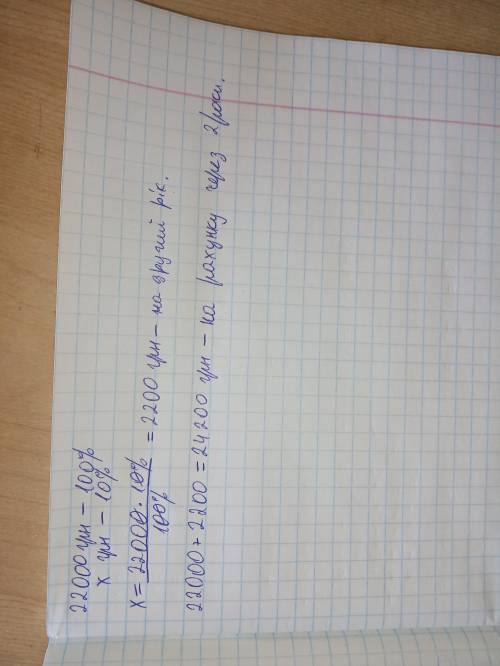 22000 грн – 100%
х грн – 10%
х = 22000 · 10% / 100% = 2200 грн – на другий рік.
22000 + 2200 = 24200 грн – на рахунку через 2 роки.